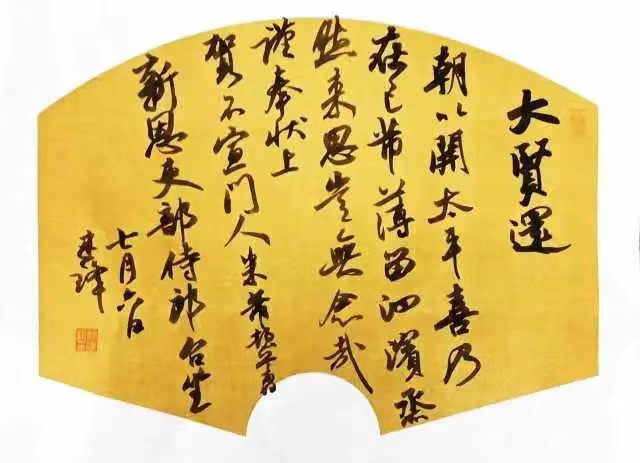 大賢還
朝以開太平喜乃
在己芾薄留泗濱烝
然来思豈無念哉
謹奉狀上
賀不宣門人米芾頓首
新恩吏部侍郎台坐
七月六日